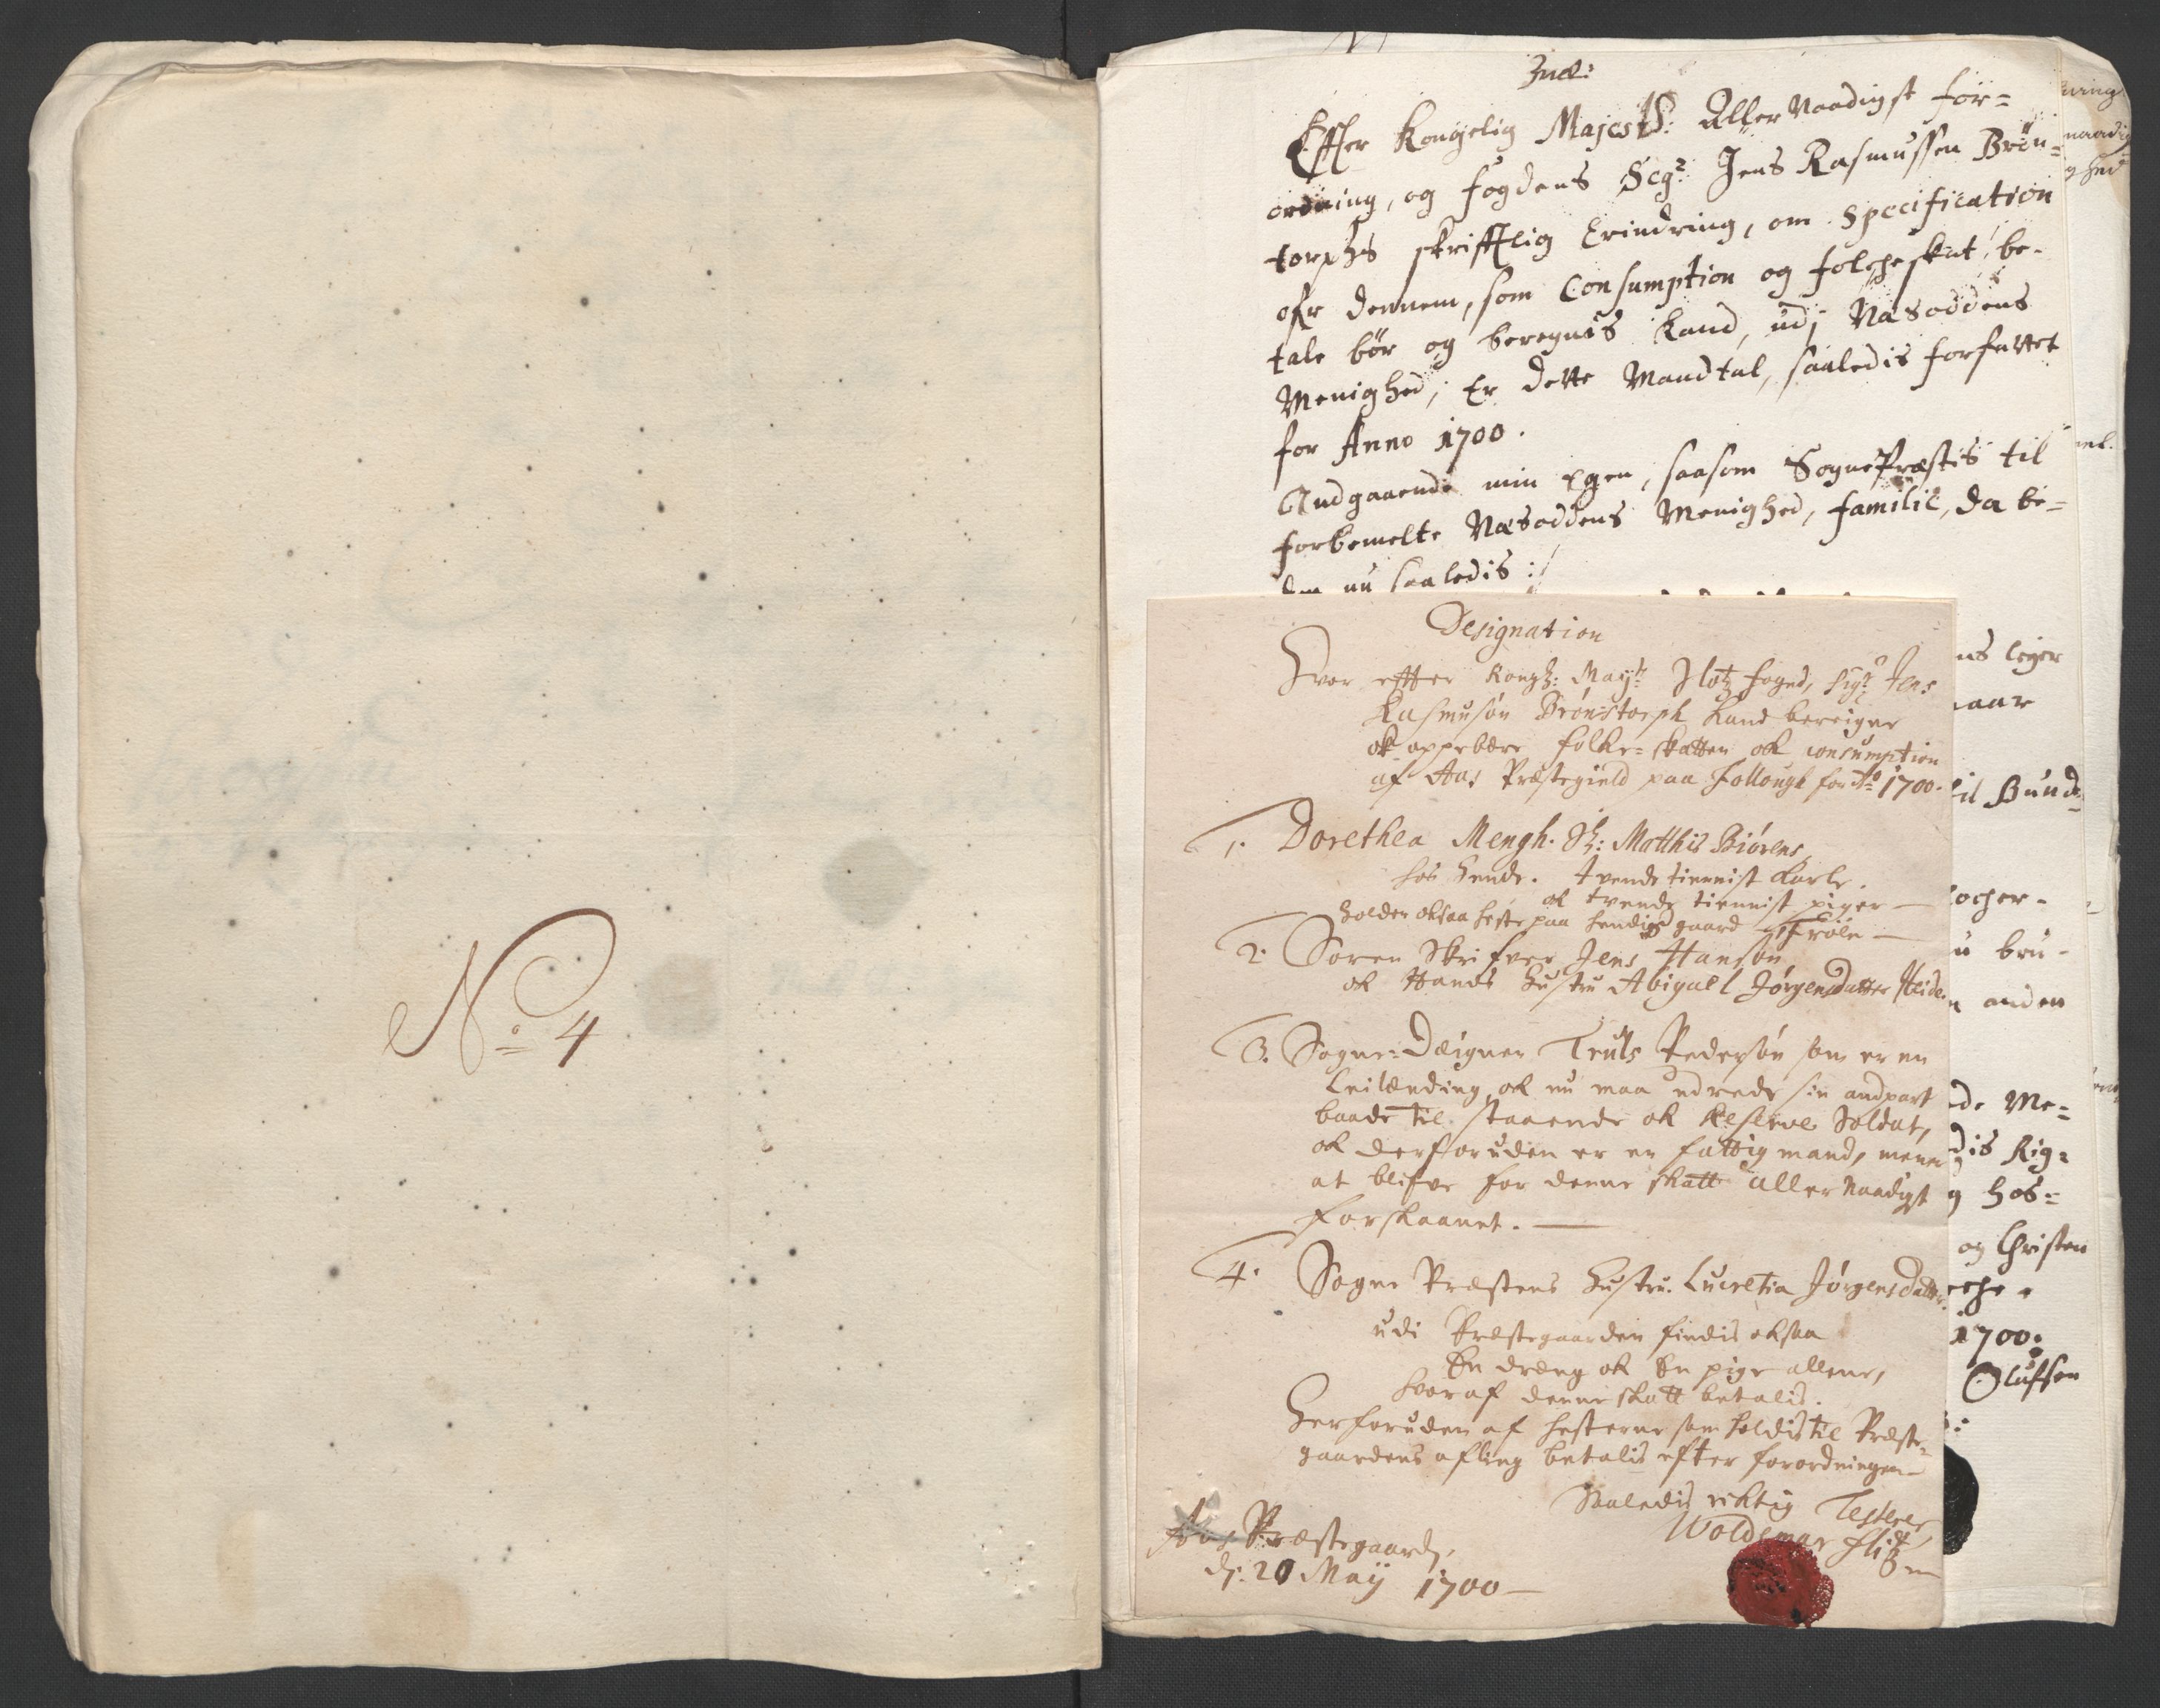 No 4
Effter Kongelig Majestß: AllerNaadigst for=
ordning, og fogdens Segr Jens Rasmussen Brøn=
torphs skrifftlig Erindring, om Specification
ofr dennem, som Consumption og folcheskat, be-
tale bør og beregnis kand, udj Næsoddens
Menighed, Er dette Mandtal, saaledis forfattet
for Anno 1700.
Andgaaende min egen, saasom SognePræstis til
forbemelte Næsoddens Menighed, familie, da be=
nu saaledis:/
Designation
Hvor effter Kongh: Mayts foged, Sigr Jens
Rasmusøn Brønstorph kand bereigne
ok oppebære folke=skatten ok consumption
af Aas Præstegield paa Follough for Ao 1700.
1. Dorethea Mengh. Sh: Matthis Biørens,
hos hende. tvende tiennist karle.
ok tvende tiennist piger —
holder oksaa heste paa hendis gaard Frøle —
2. Soren Skrifver Jens Hansøn
ok Hands hustru Abigael Jørgensdatter
3. Sogne=Deigner Truls Pedersøn som er en
Leilænding, ok nu maa udrede sin andpart
baade til staaende ok Reserve Soldat,
ok derforuden er en fattig mand, mener
at blifve for denne skatt allerNaadigst
forskaanet. —
4. Sogne Præstens hustru. Lucretia Jørgensdatter.
udi Præstegaarden findis oksaa
En dreng ok En pige allene,
hvoraf denne skatt betalis.
Herforuden af hesterne som holdis til Præste=
gaardens afling betalis efter forordningen —
Saaledis riktig Testerer
Woldemar
Aas Præstegaard,
d: 20 Maij 1700 —
ns leger
aar
Bund=
locher-
u bru-
n anden
de Me=
dis Rig=
g hos=
og Christen
1700.
Olufsen